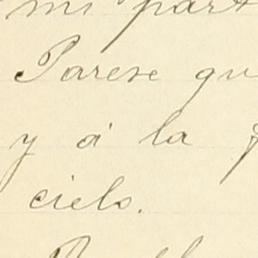 mi part
Parese qu
y á la
cielo.